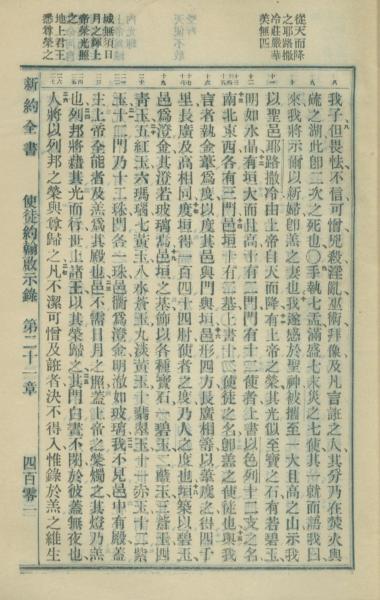 從天而降
之耶路撒
冷莊嚴華
美無匹
城無須日
月之輝上
帝榮光照
之
地上君王
悉尊榮之
我子但畏怯不信可憎兇殺淫亂巫術拜像及凡言誑之人其分乃在焚火與
硫之湖此卽二次之死也〇手執七盂滿盛七末災之七使其一就而語我曰
來我將示爾以新婦卽羔之妻也我遂感於聖神被攜至一大且高之山示我
以聖邑耶路撒冷由上帝自天而降有上帝之榮其光似至寶之石有若碧玉
明如水晶有垣大而且高十有二門門有十二使者上書以色列十二支之名
南北東西各有三門邑垣十有二基上書十二使徒之名卽羔之使徒也與我
言者執金葦爲度以度其邑與門與垣邑形四方長廣相等以葦度之得四千
里長廣及高相同度垣得一百四十四肘使者之度乃人之度也垣築以碧玉
邑爲澄金其澄若玻璃爲邑垣之基飾以各種寶石一碧玉二藍玉三蒼玉四
靑玉五紅玉六瑪瑙七黃玉八水蒼玉九淡黃玉十翡翠玉十一赤玉十二紫
玉十二門乃十二珠門各一珠邑衢爲澄金明澈如玻璃我不見邑中有殿蓋
主上帝全能者及羔爲其殿也邑不需日月之照蓋上帝之榮燭之其燈乃羔
也列邦將藉其光而行世上諸王以其榮歸之其門白晝不閉於彼蓋無夜也
人將以列邦之榮與尊歸之凡不潔可憎及誑者決不得入惟錄於羔之維生
新約全書 使徒約翰啟示錄 第二十一章 四百零二